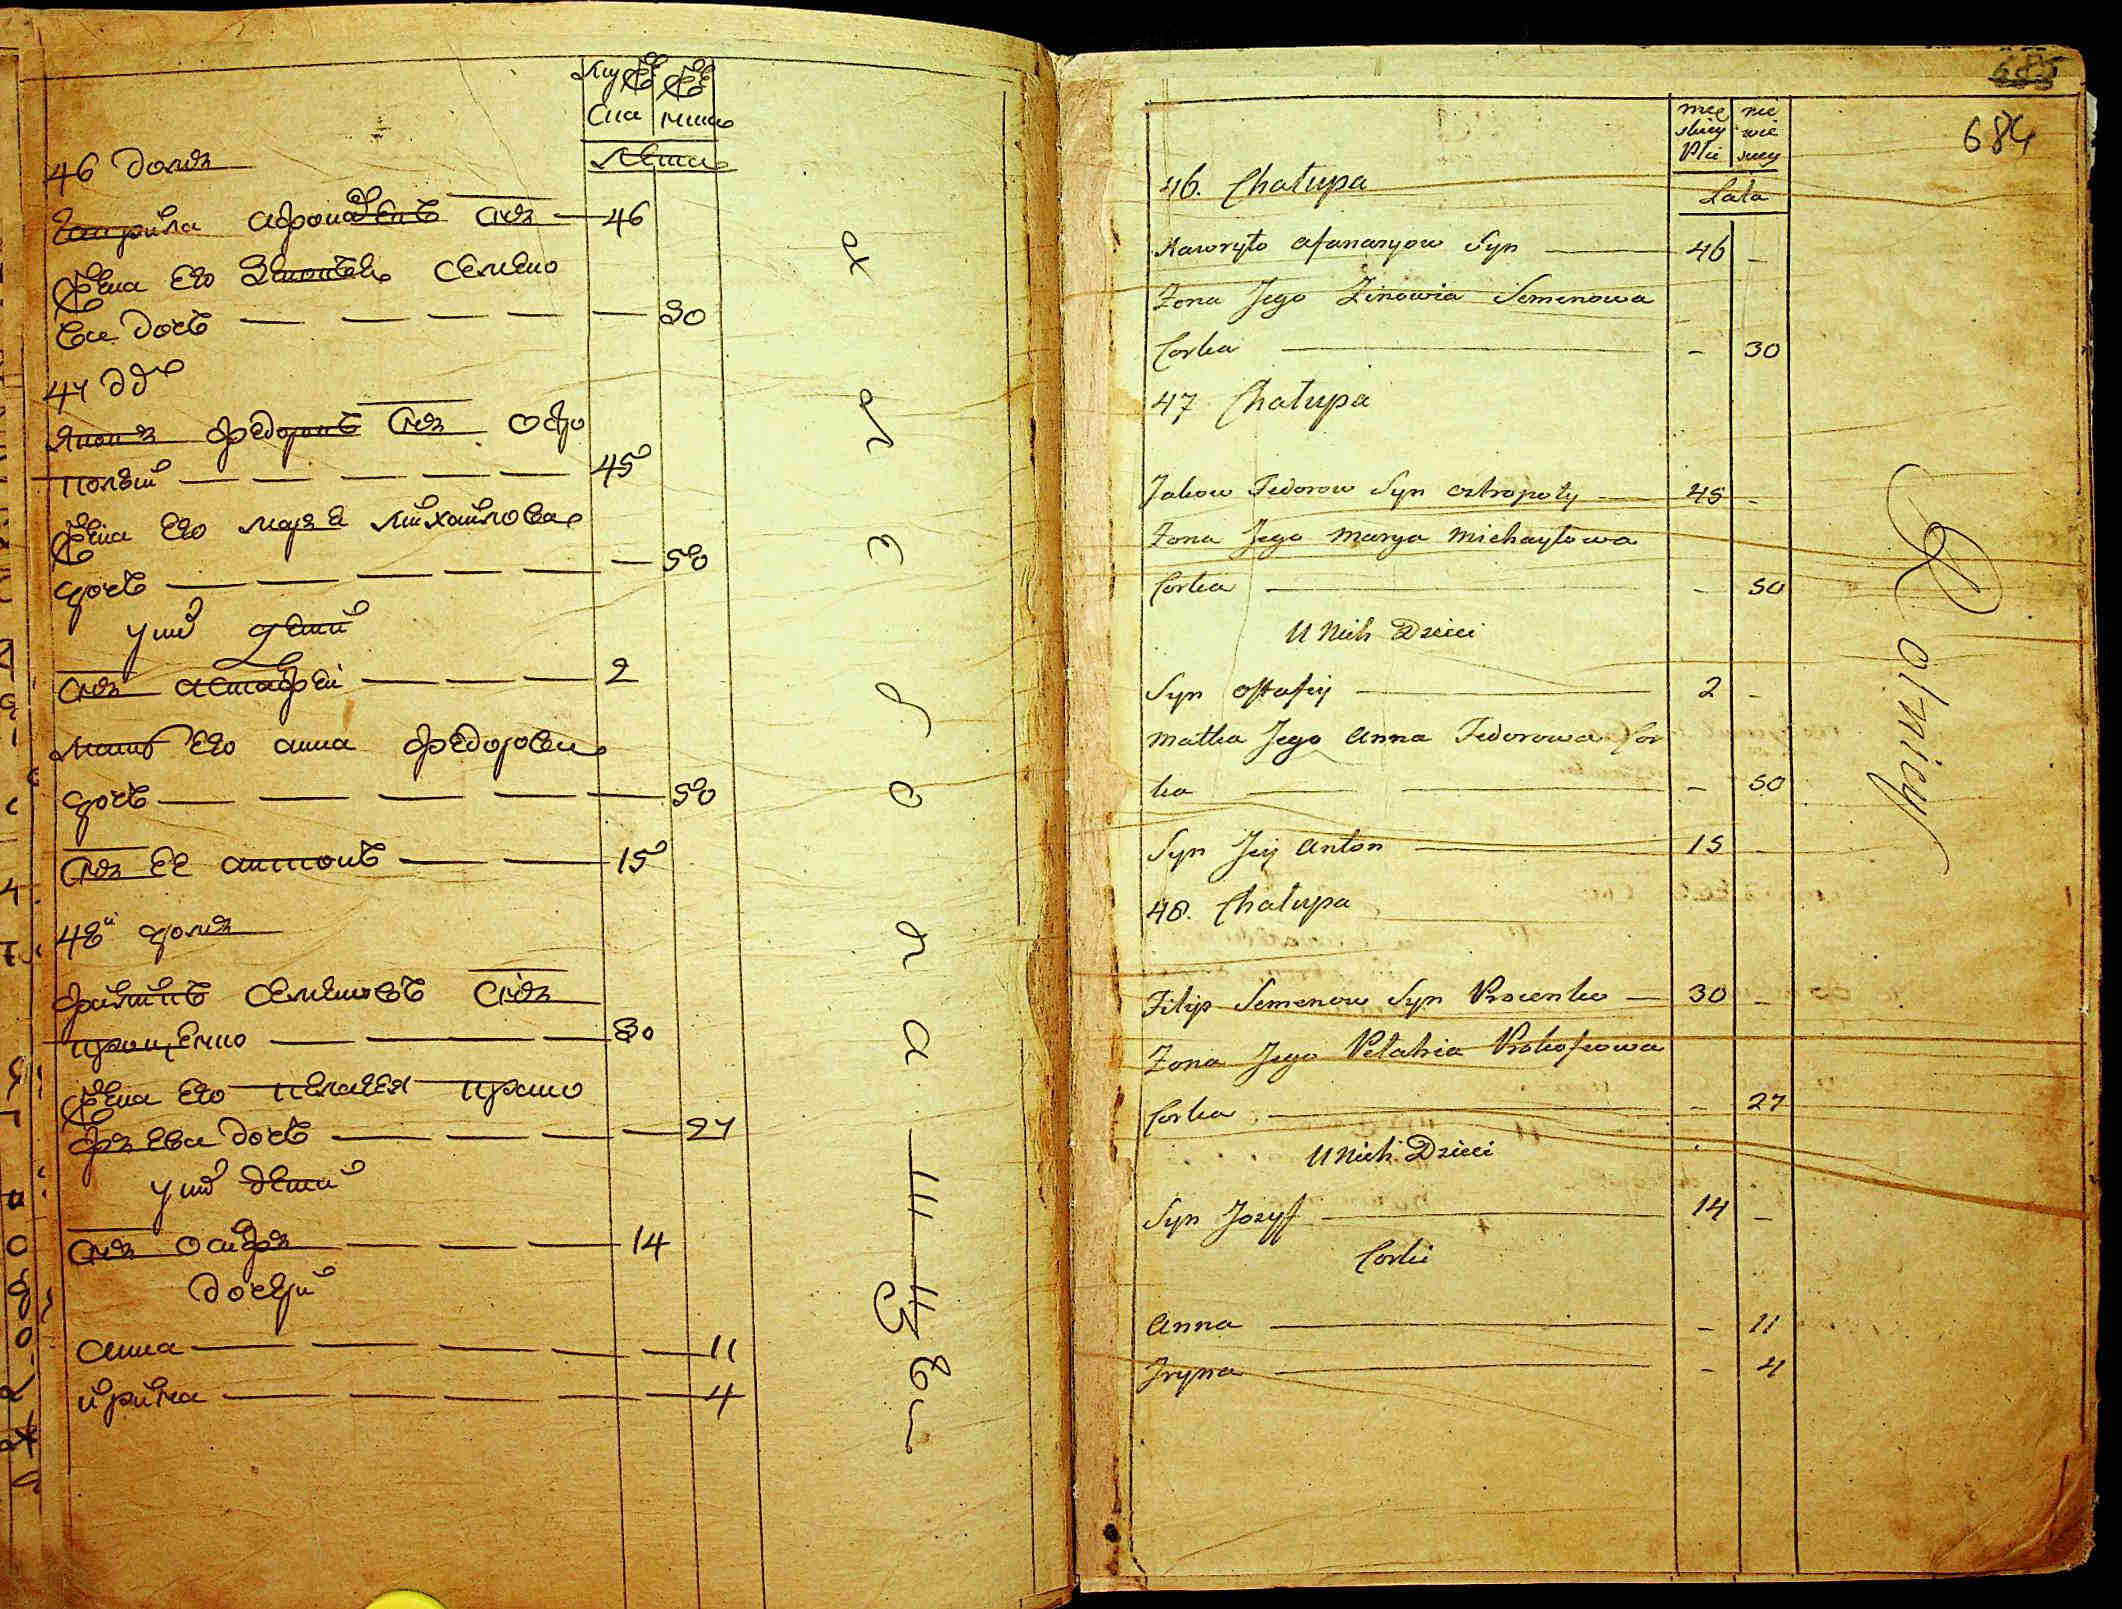 муже
ска
женс
ка
лета
46 домъ
Гаврила афонасиевъ снъ — 46
жена его Зеновея семено
ва дочь — 30
47 д
Яковъ федоровъ снъ остро
полей — 45
жена его маря михаилова
дочь — 50
у них дети
снъ астафеи — 2
мать его анна федорова
дочь — 50
снъ ее антонъ — 15
48й домъ
филипъ семеновъ снъ
проценко — 30
жена его пелагея проко
фьева дочь — 27
у них дети
снъ осифъ — 14
дочери
анна — 11
ирина — 4
хлебопашцы
685
684
męskiey Płci
niewiesciey
Lata
46. Chałupa
Hawryło afanasyow Syn — 46 -
Zona Jego Zinowia Semenowa
Corka — - 30
47 Chałupa
Jakow Fedorow Syn ostropoły — 45 -
Zona Jego Marya Michayłowa
Corka — - 50
U Nich Dzieci
Syn ostafiy — 2 -
Matka Jego Anna Fedorowa Cor
ka — - 50
Syn Jey Anton — 15
48. Chałupa
Filip Semenow Syn Procenko — 30 -
Zona Jego Pełahia Prokofiowa
Corka — - 27
U Nich Dzieci
Syn Jozyff — 14 -
Corki
Anna — - 11
Jryna — - 4
Rolnicy